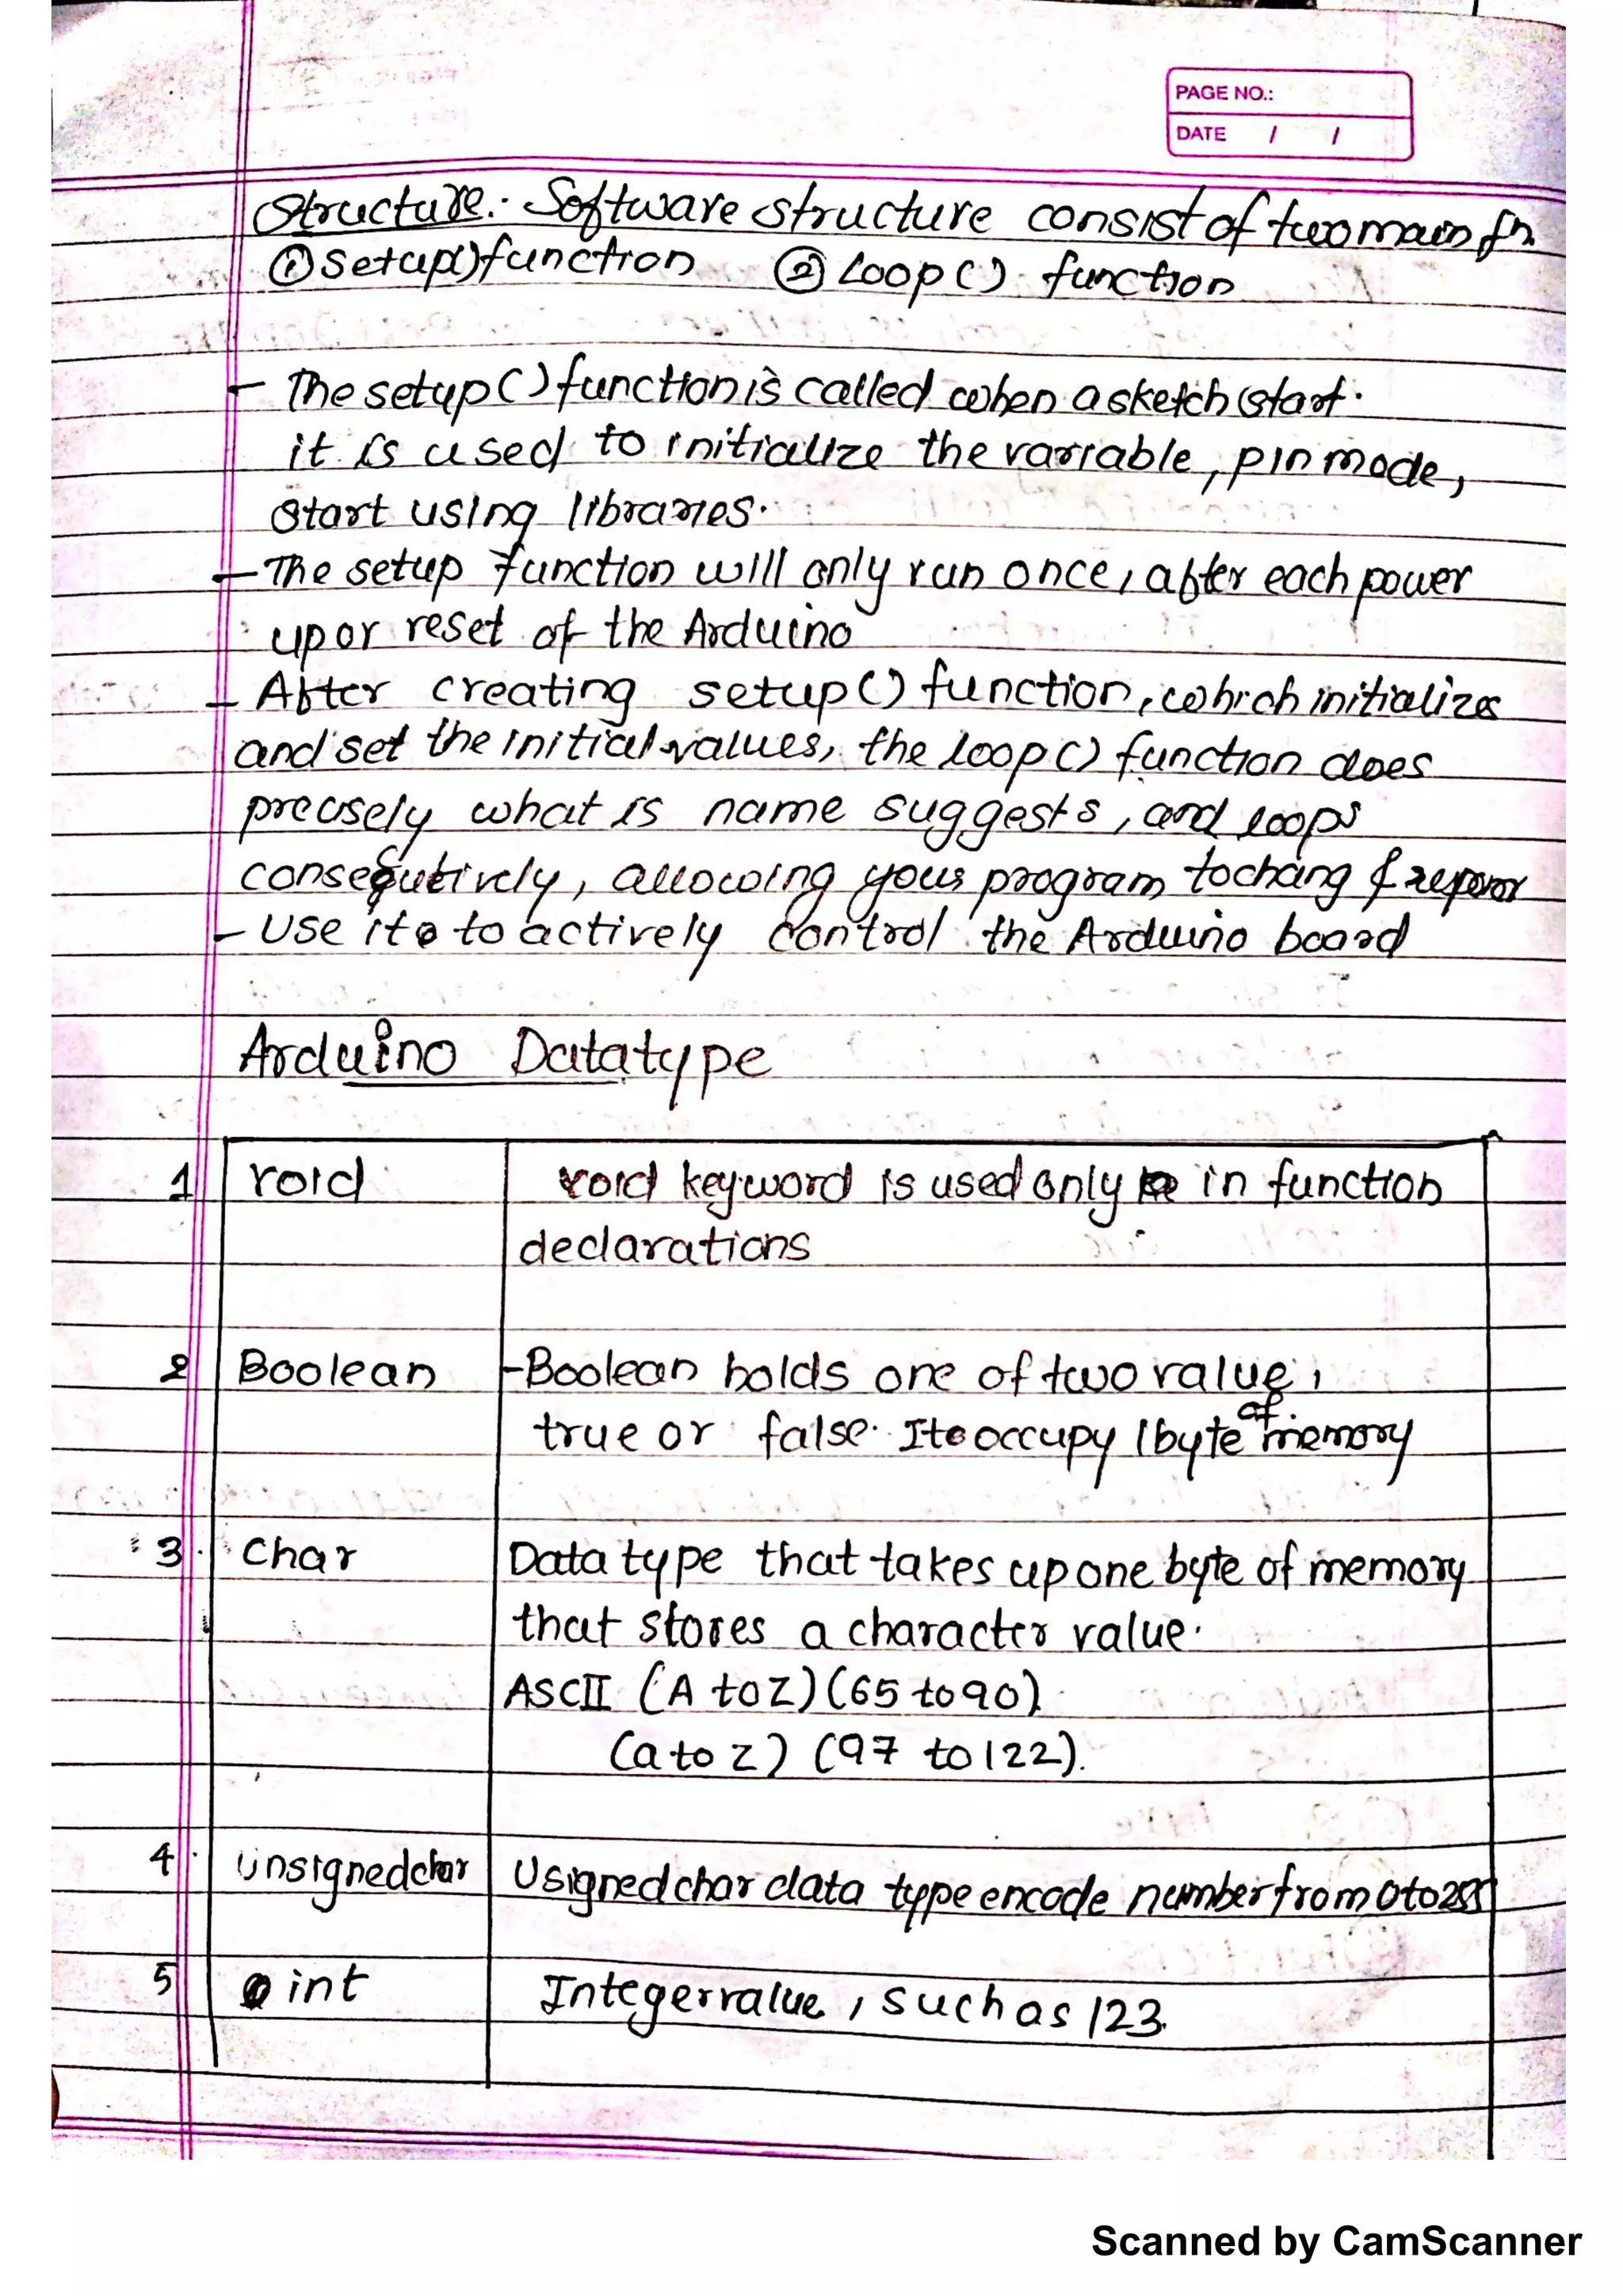 PAGE NO.:
DATE / /
Structure:- Software structure consist of two main fn
① Setup() function ② Loop() function
- The setup() function is called when a sketch start.
it is used to initialize the variable, pin mode,
start using libraries.
- The setup function will only run once, after each power
up or reset of the Arduino
- After creating setup() function, which initializes
and set the initial values, the loop() function does
precisely what is name suggests, and loops
consecutively, allowing your program to chang &
- Use it to actively control the Arduino board
Arduino Datatype
1 void void keyword is used only in function
declarations
2 Boolean - Boolean holds one of two value,
true or false. It occupy 1 byte of memory
3. Char Data type that takes up one byte of memory
that stores a character value.
ASCII (A to Z) (65 to 90)
(a to z) (97 to 122).
4. Unsigned char Usigned char data type encode number from 0 to 255
5 int Integer value, such as 123.
Scanned by CamScanner